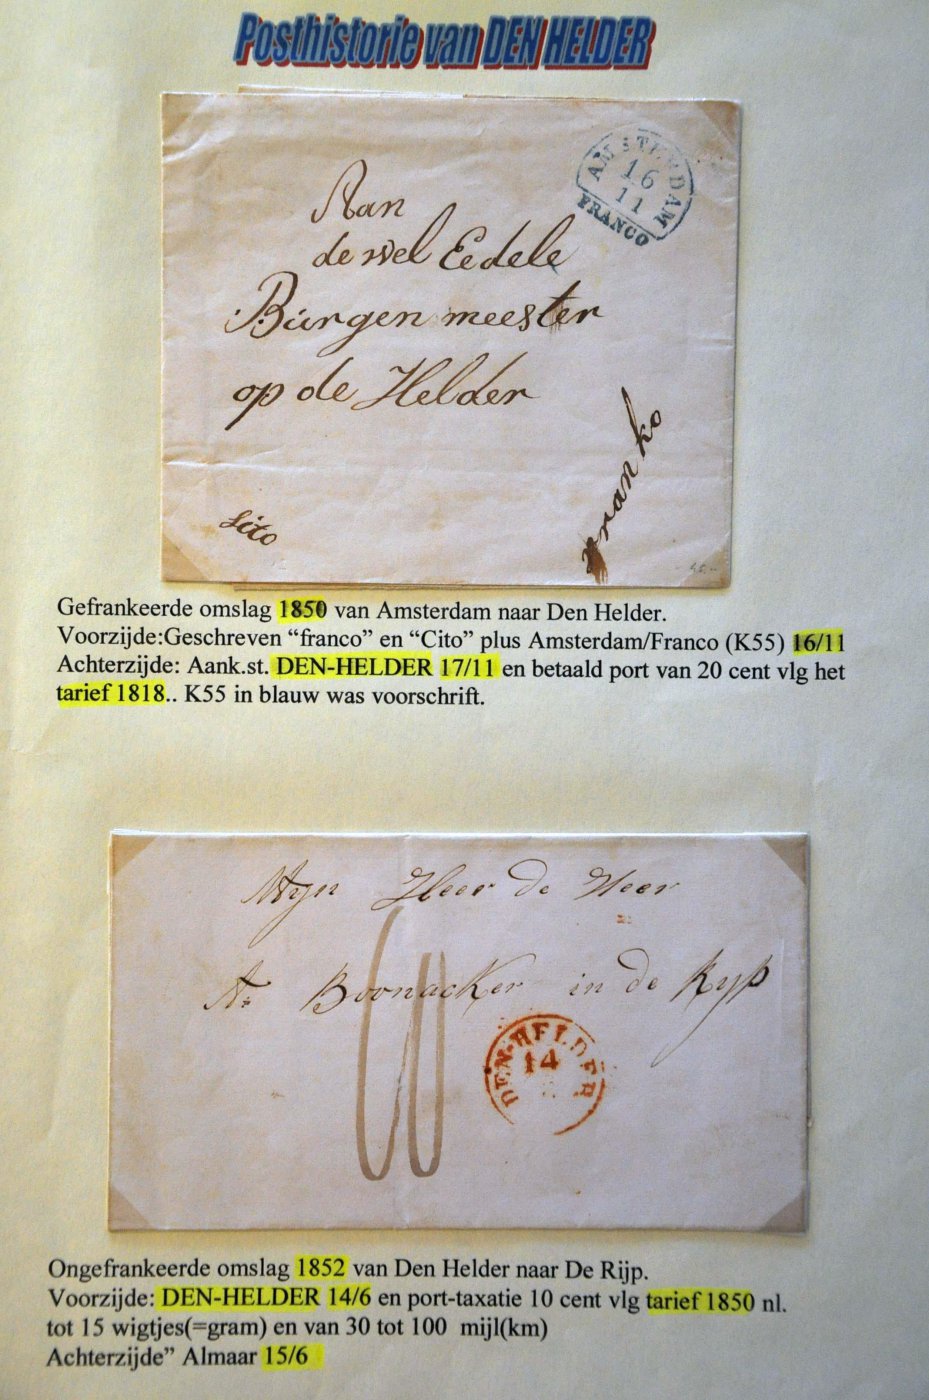 Posthistorie van DEN HELDER
AMSTERDAM
16
11
FRANCO
Aan
de wel Eedele
Burgen meester
op de Helder
franko
Cito
Gefrankeerde omslag 1850 van Amsterdam naar Den Helder.
Voorzijde:Geschreven “franco” en “Cito” plus Amsterdam/Franco (K55) 16/11
Achterzijde: Aank.st. DEN-HELDER 17/11 en betaald port van 20 cent vlg het
tarief 1818.. K55 in blauw was voorschrift.
Myn Heer de Heer
Boonacker in de Ryp
10
DEN-HELDER
14
Ongefrankeerde omslag 1852 van Den Helder naar De Rijp.
Voorzijde: DEN-HELDER 14/6 en port-taxatie 10 cent vlg tarief 1850 nl.
tot 15 wigtjes(=gram) en van 30 tot 100 mijl(km)
Achterzijde” Almaar 15/6